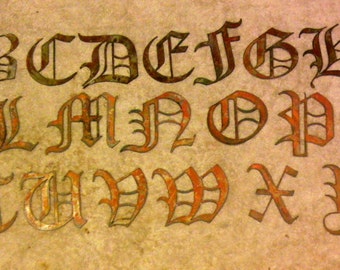 BCDEFGH
LMNOP
UVWXY